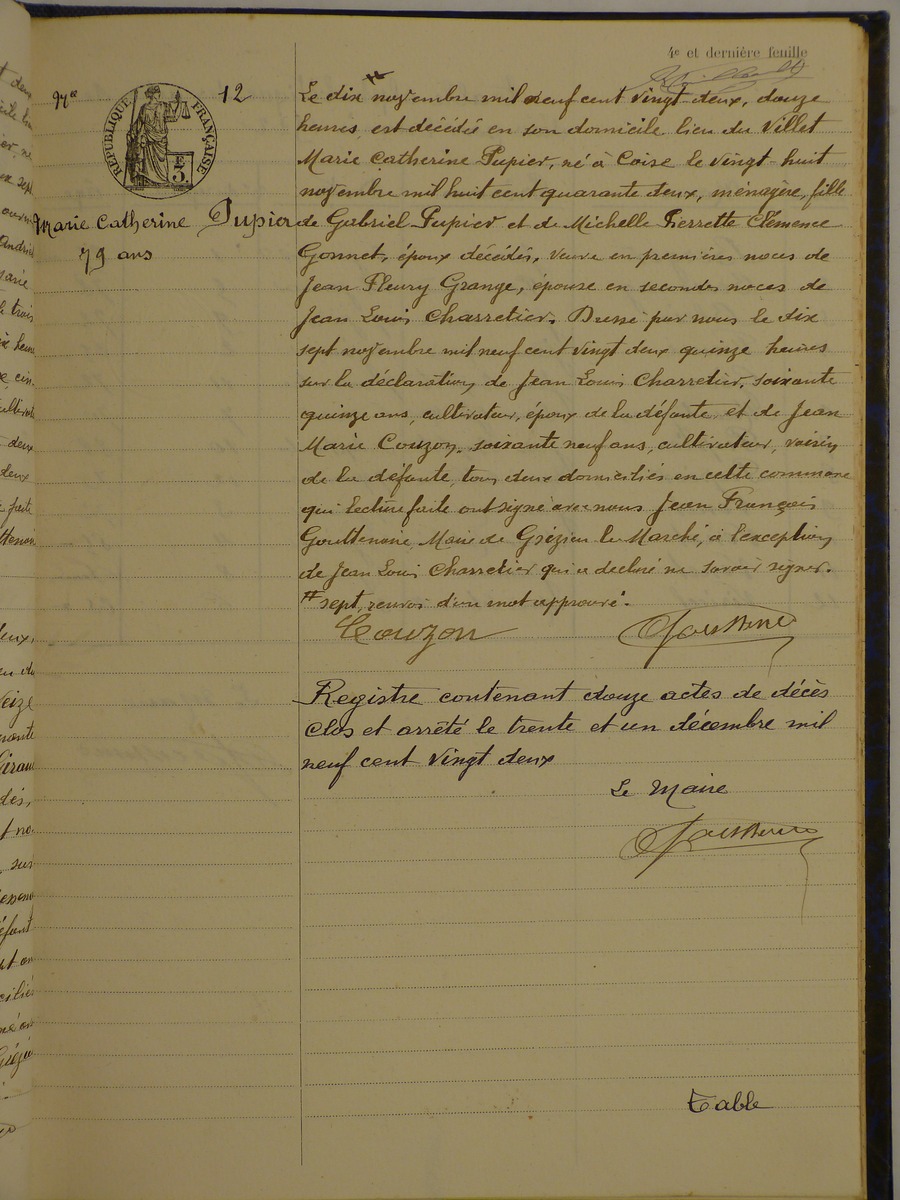 4e et dernière feuille
12
RÉPUBLIQUE FRANÇAISE
3
Marie Catherine Pupier
79 ans
Le dix # novembre mil neuf cent vingt deux, douze
heures, est décédée en son domicile lieu du Villet
Marie Catherine Pupier, né à Coise le vingt-huit
novembre mil huit cent quarante deux, ménagère, fille
de Gabriel Pupier et de Michelle Pierrette Clémence
Gonnet, époux décédés, veuve en premières noces de
Jean Fleury Grange, épouse en secondes noces de
Jean Louis Charretier. Dressé par nous le dix
sept novembre mil neuf cent vingt deux quinze heures
sur la déclaration de Jean Louis Charretier, soixante
quinze ans, cultivateur, époux de la défunte, et de Jean
Marie Couzon, soixante neuf ans, cultivateur, voisin
de la défunte, tous deux domiciliés en cette commune
qui lecture faite ont signé avec nous Jean François
Gouttenoire, Maire de Grézieu le Marché, à l'exception
de Jean Louis Charretier qui a déclaré ne savoir signer.
# sept, renvoi d'un mot approuvé.
Couzon
Registre contenant douze actes de décès
clos et arrêté le trente et un décembre mil
neuf cent vingt deux
Le Maire
Table